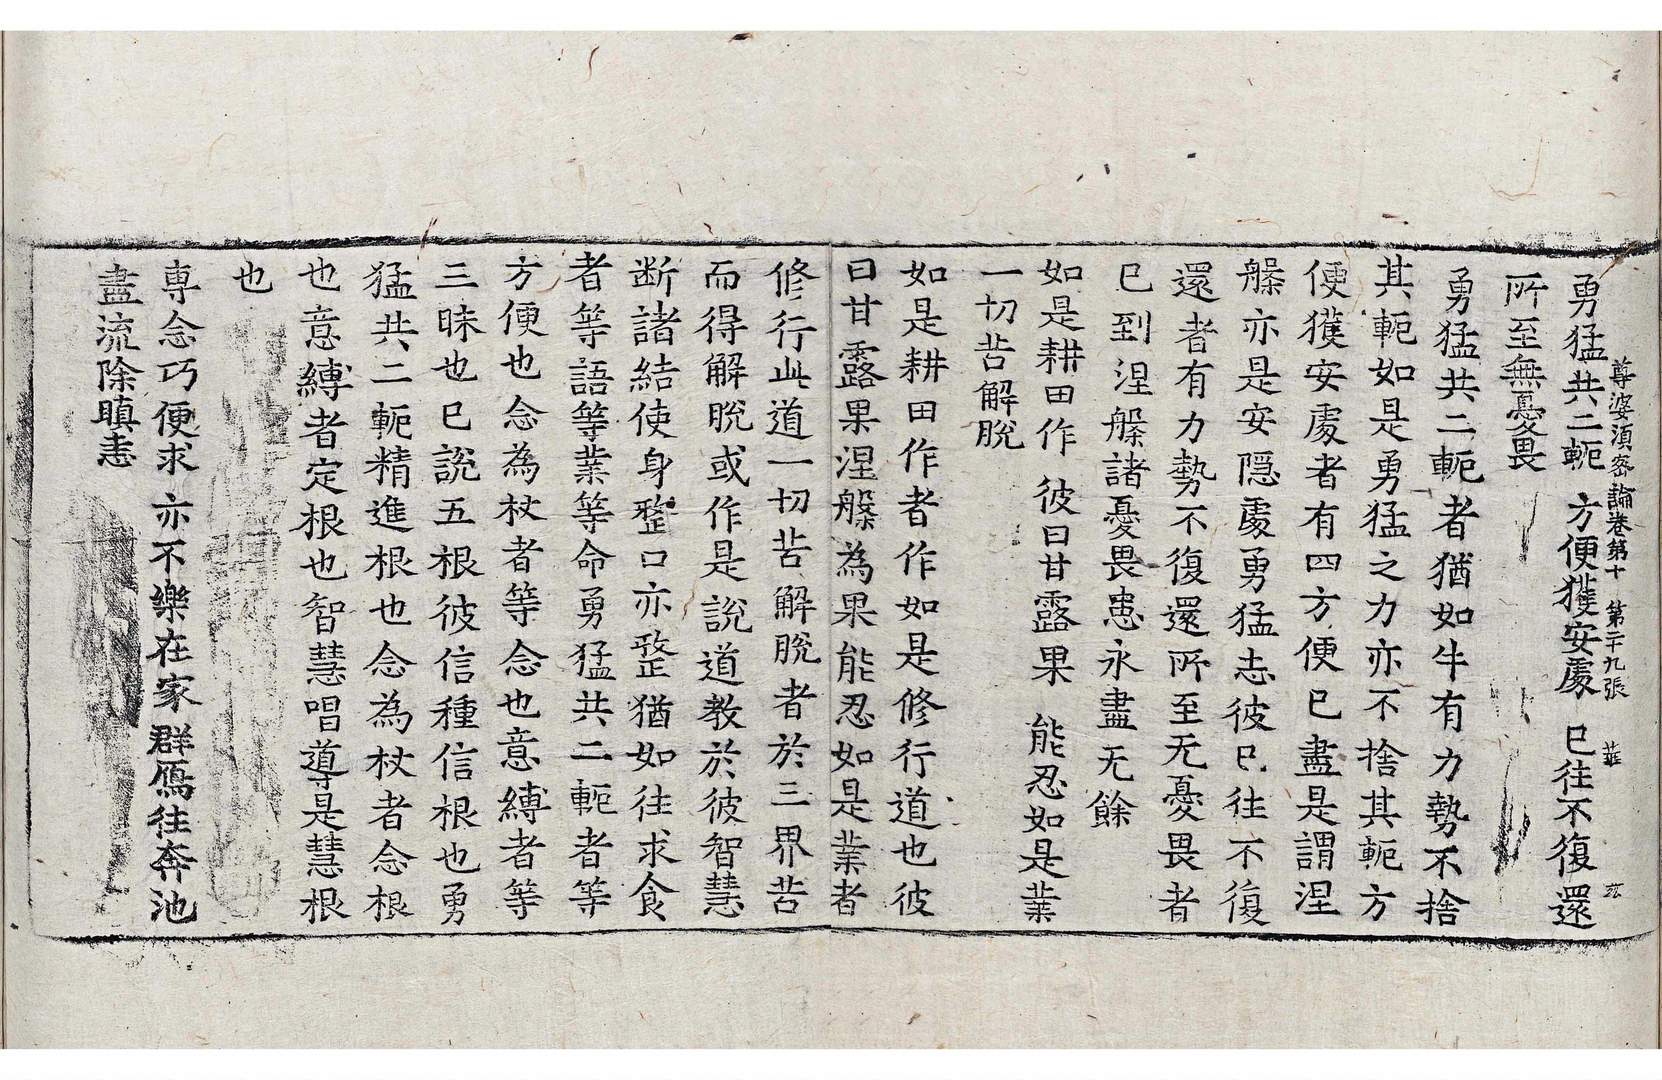 尊婆須蜜論卷第十 第二十九張 華 玆
勇猛共二軛 方便獲安處 已往不復還
所至無憂畏
勇猛共二軛者猶如牛有力勢不捨
其軛如是勇猛之力亦不捨其軛方
便獲安處者有四方便已盡是謂涅
槃亦是安隱處勇猛志彼已往不復
還者有力勢不復還所至无憂畏者
已到涅槃諸憂畏患永盡无餘
如是耕田作 彼曰甘露果 能忍如是業
一切苦解脫
如是耕田作者作如是修行道也彼
曰甘露果涅槃為果能忍如是業者
修行此道一切苦解脫者於三界苦
而得解脫或作是說道教於彼智慧
断諸結使身整口亦整猶如往求食
者等語等業等命勇猛共二軛者等
方便也念為杖者等念也意縛者等
三昧也已說五根彼信種信根也勇
猛共二軛精進根也念為杖者念根
也意縛者定根也智慧唱導是慧根
也
專念巧便求 亦不樂在家 群鴈往奔池
盡流除瞋恚